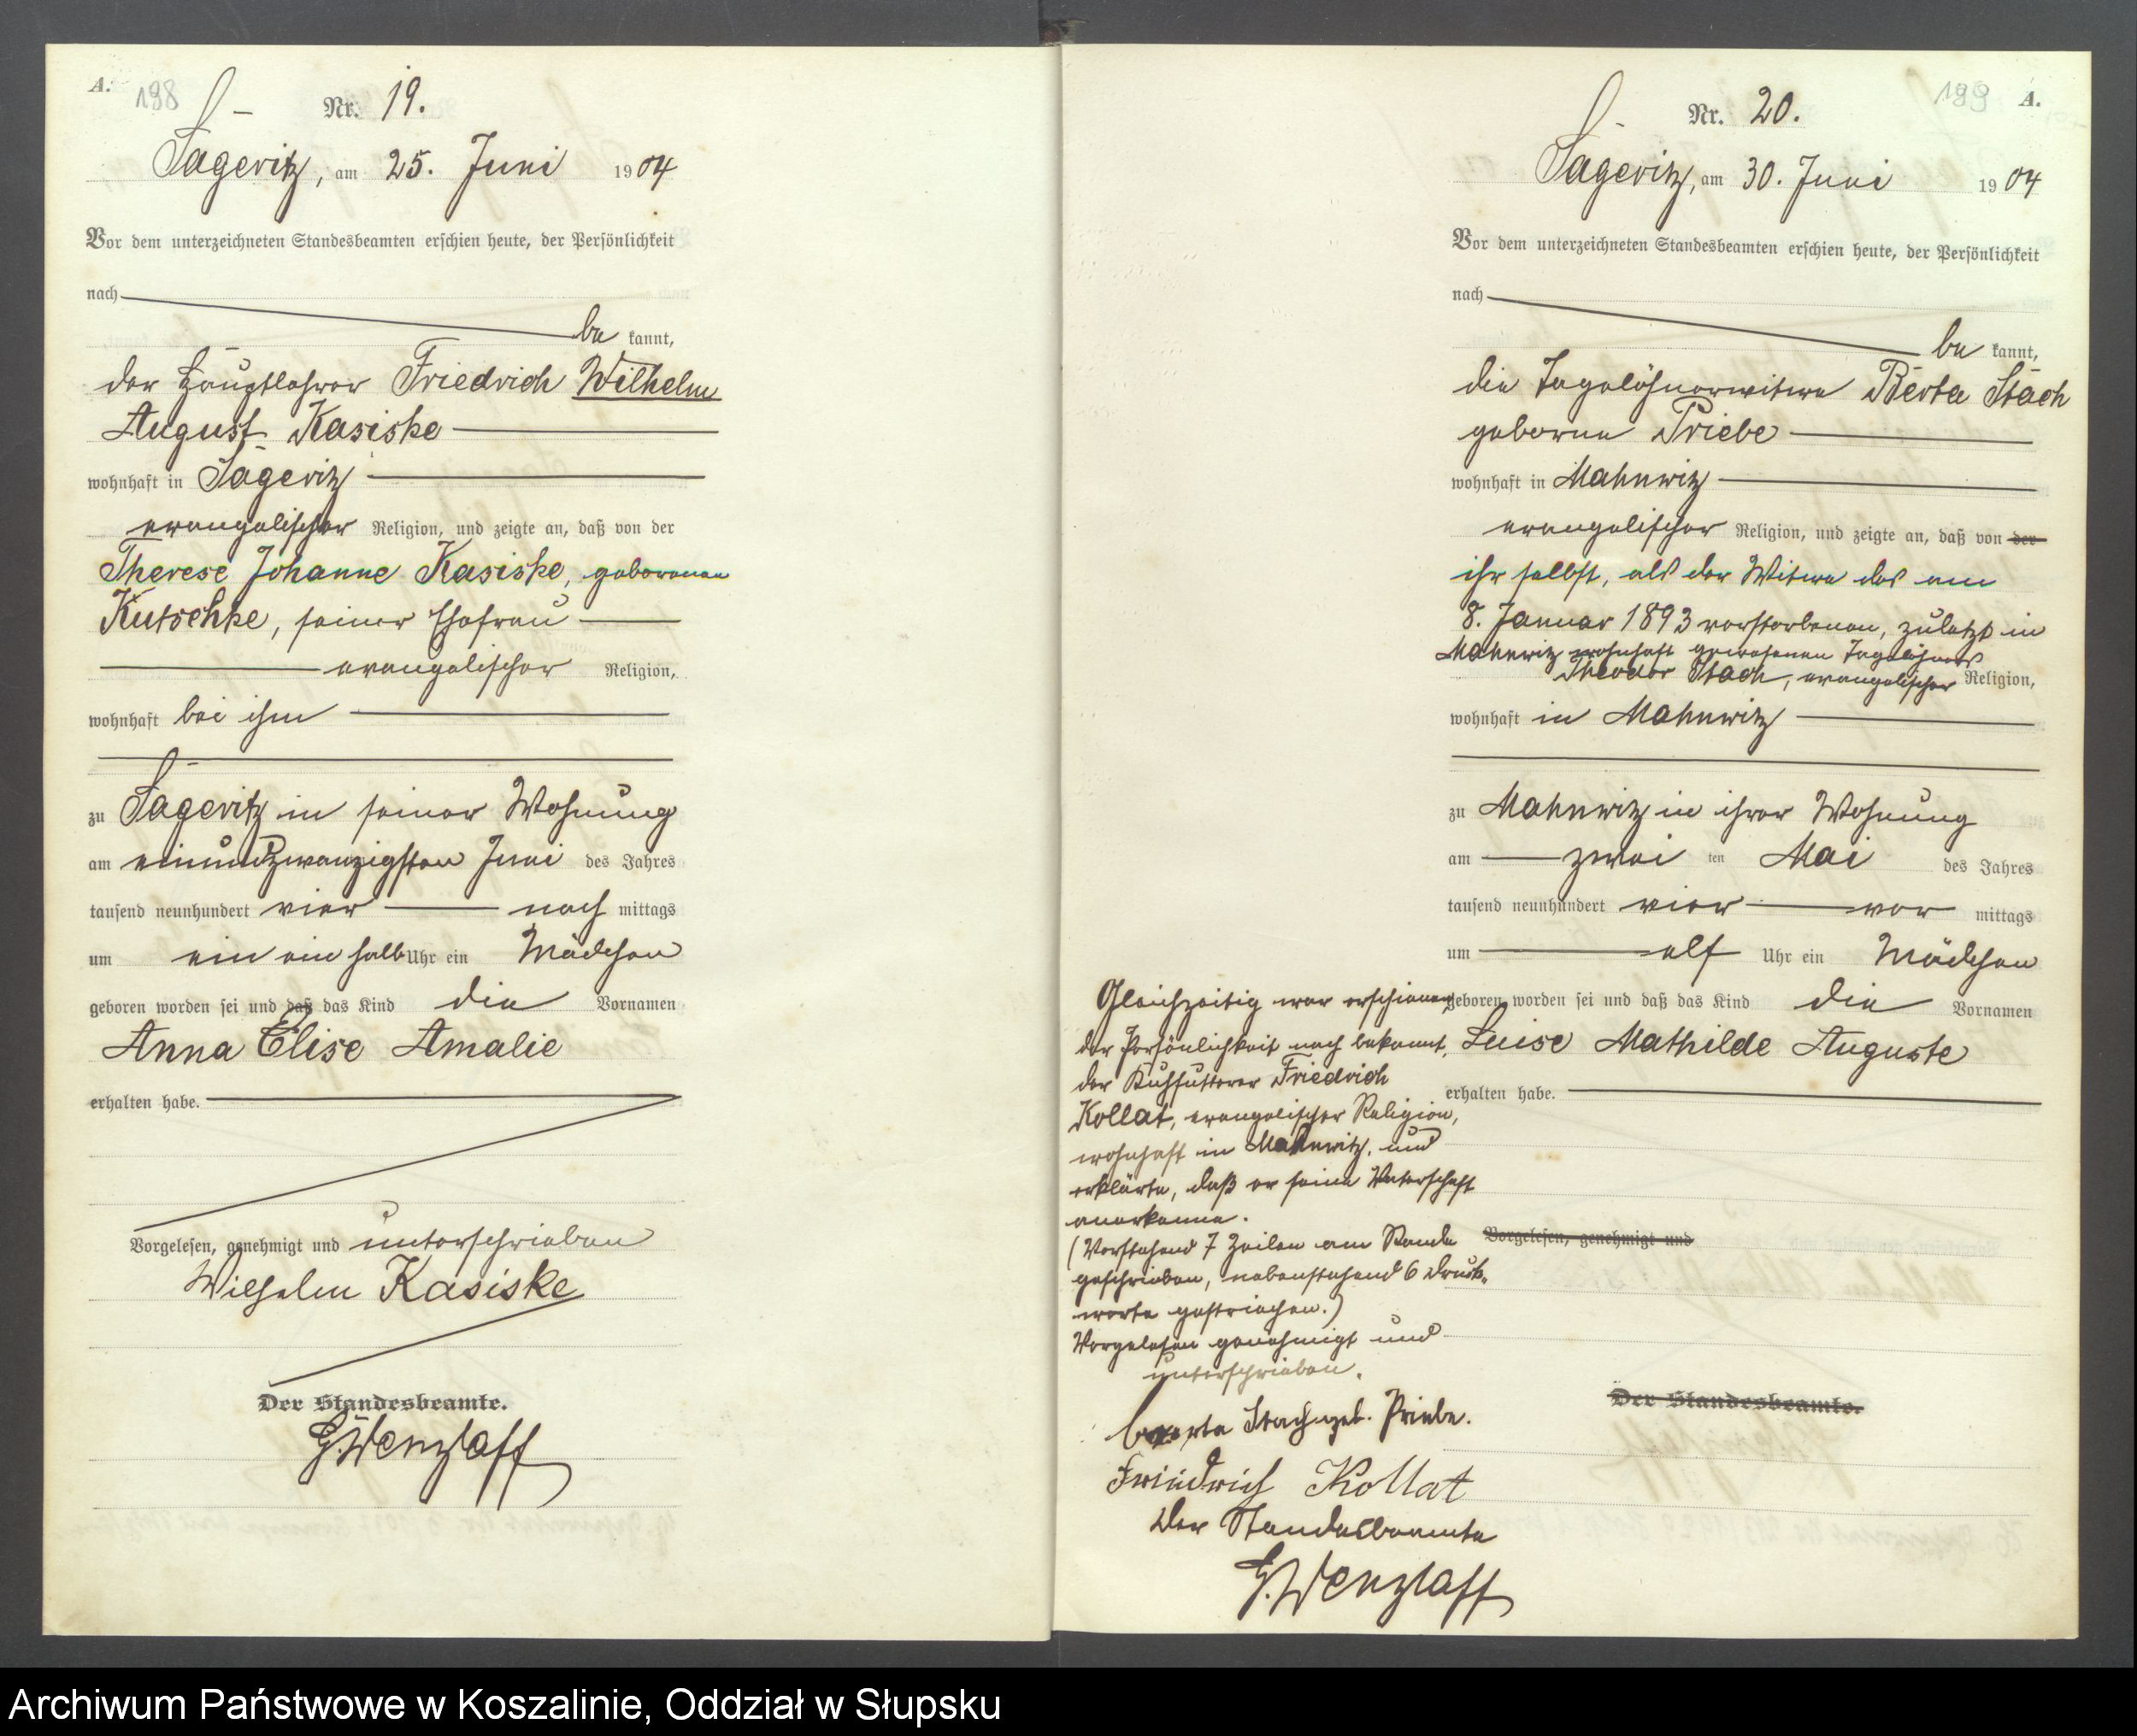 A.
198
Nr. 19.
Sageritz, am 25. Juni 1904
Vor dem unterzeichneten Standesbeamten erschien heute, der Persönlichkeit
nach
be kannt,
der Hauptlehrer Friedrich Wilhelm
August Kasiske
wohnhaft in Sageritz
evangelischer Religion, und zeigte an, daß von der
Therese Johanne Kasiske, geborenen
Kutschke, seiner Ehefrau
evangelischer Religion,
wohnhaft bei ihm
zu Sageritz in seiner Wohnung
am einundzwanzigsten Juni des Jahres
tausend neunhundert vier nach mittags
um ein ein halb Uhr ein Mädchen
geboren worden sei und daß das Kind die Vornamen
Anna Elise Amalie
erhalten habe.
Vorgelesen, genehmigt und unterschrieben
Wilhelm Kasiske
Der Standesbeamte.
G. Wenzlaff
199
A.
Nr. 20.
Sageritz, am 30. Juni 1904
Vor dem unterzeichneten Standesbeamten erschien heute, der Persönlichkeit
nach
be kannt,
die Tagelöhnerwitwe Berta Stach
geborne Priebe
wohnhaft in Mahnwitz
evangelischer Religion, und zeigte an, daß von der
ihr selbst, als der Witwe des am
8. Januar 1893 verstorbenen, zuletzt in
Mahnwitz wohnhaft gewesenen Tagelöhners
Theodor Stach, evangelischer Religion,
wohnhaft in Mahnwitz
zu Mahnwitz in ihrer Wohnung
am zwei ten Mai des Jahres
tausend neunhundert vier vor mittags
um elf Uhr ein Mädchen
geboren worden sei und daß das Kind die Vornamen
Luise Mathilde Auguste
erhalten habe.
Vorgelesen, genehmigt und
Der Standesbeamte.
Gleichzeitig war erschienen,
der Persönlichkeit nach bekannt,
der Kuhfutterer Friedrich
Kollat, evangelischer Religion,
wohnhaft in Mahnwitz, und
erklärte, daß er seine Vaterschaft
anerkenne.
(Vorstehend 7 Zeilen am Rande
geschrieben, nebenstehend 6 Druck-
worte gestrichen.)
Vorgelesen genehmigt und
unterschrieben.
Berta Stach geb. Priebe.
Friedrich Kollat
Der Standesbeamte
G. Wenzlaff
Archiwum Państwowe w Koszalinie, Oddział w Słupsku